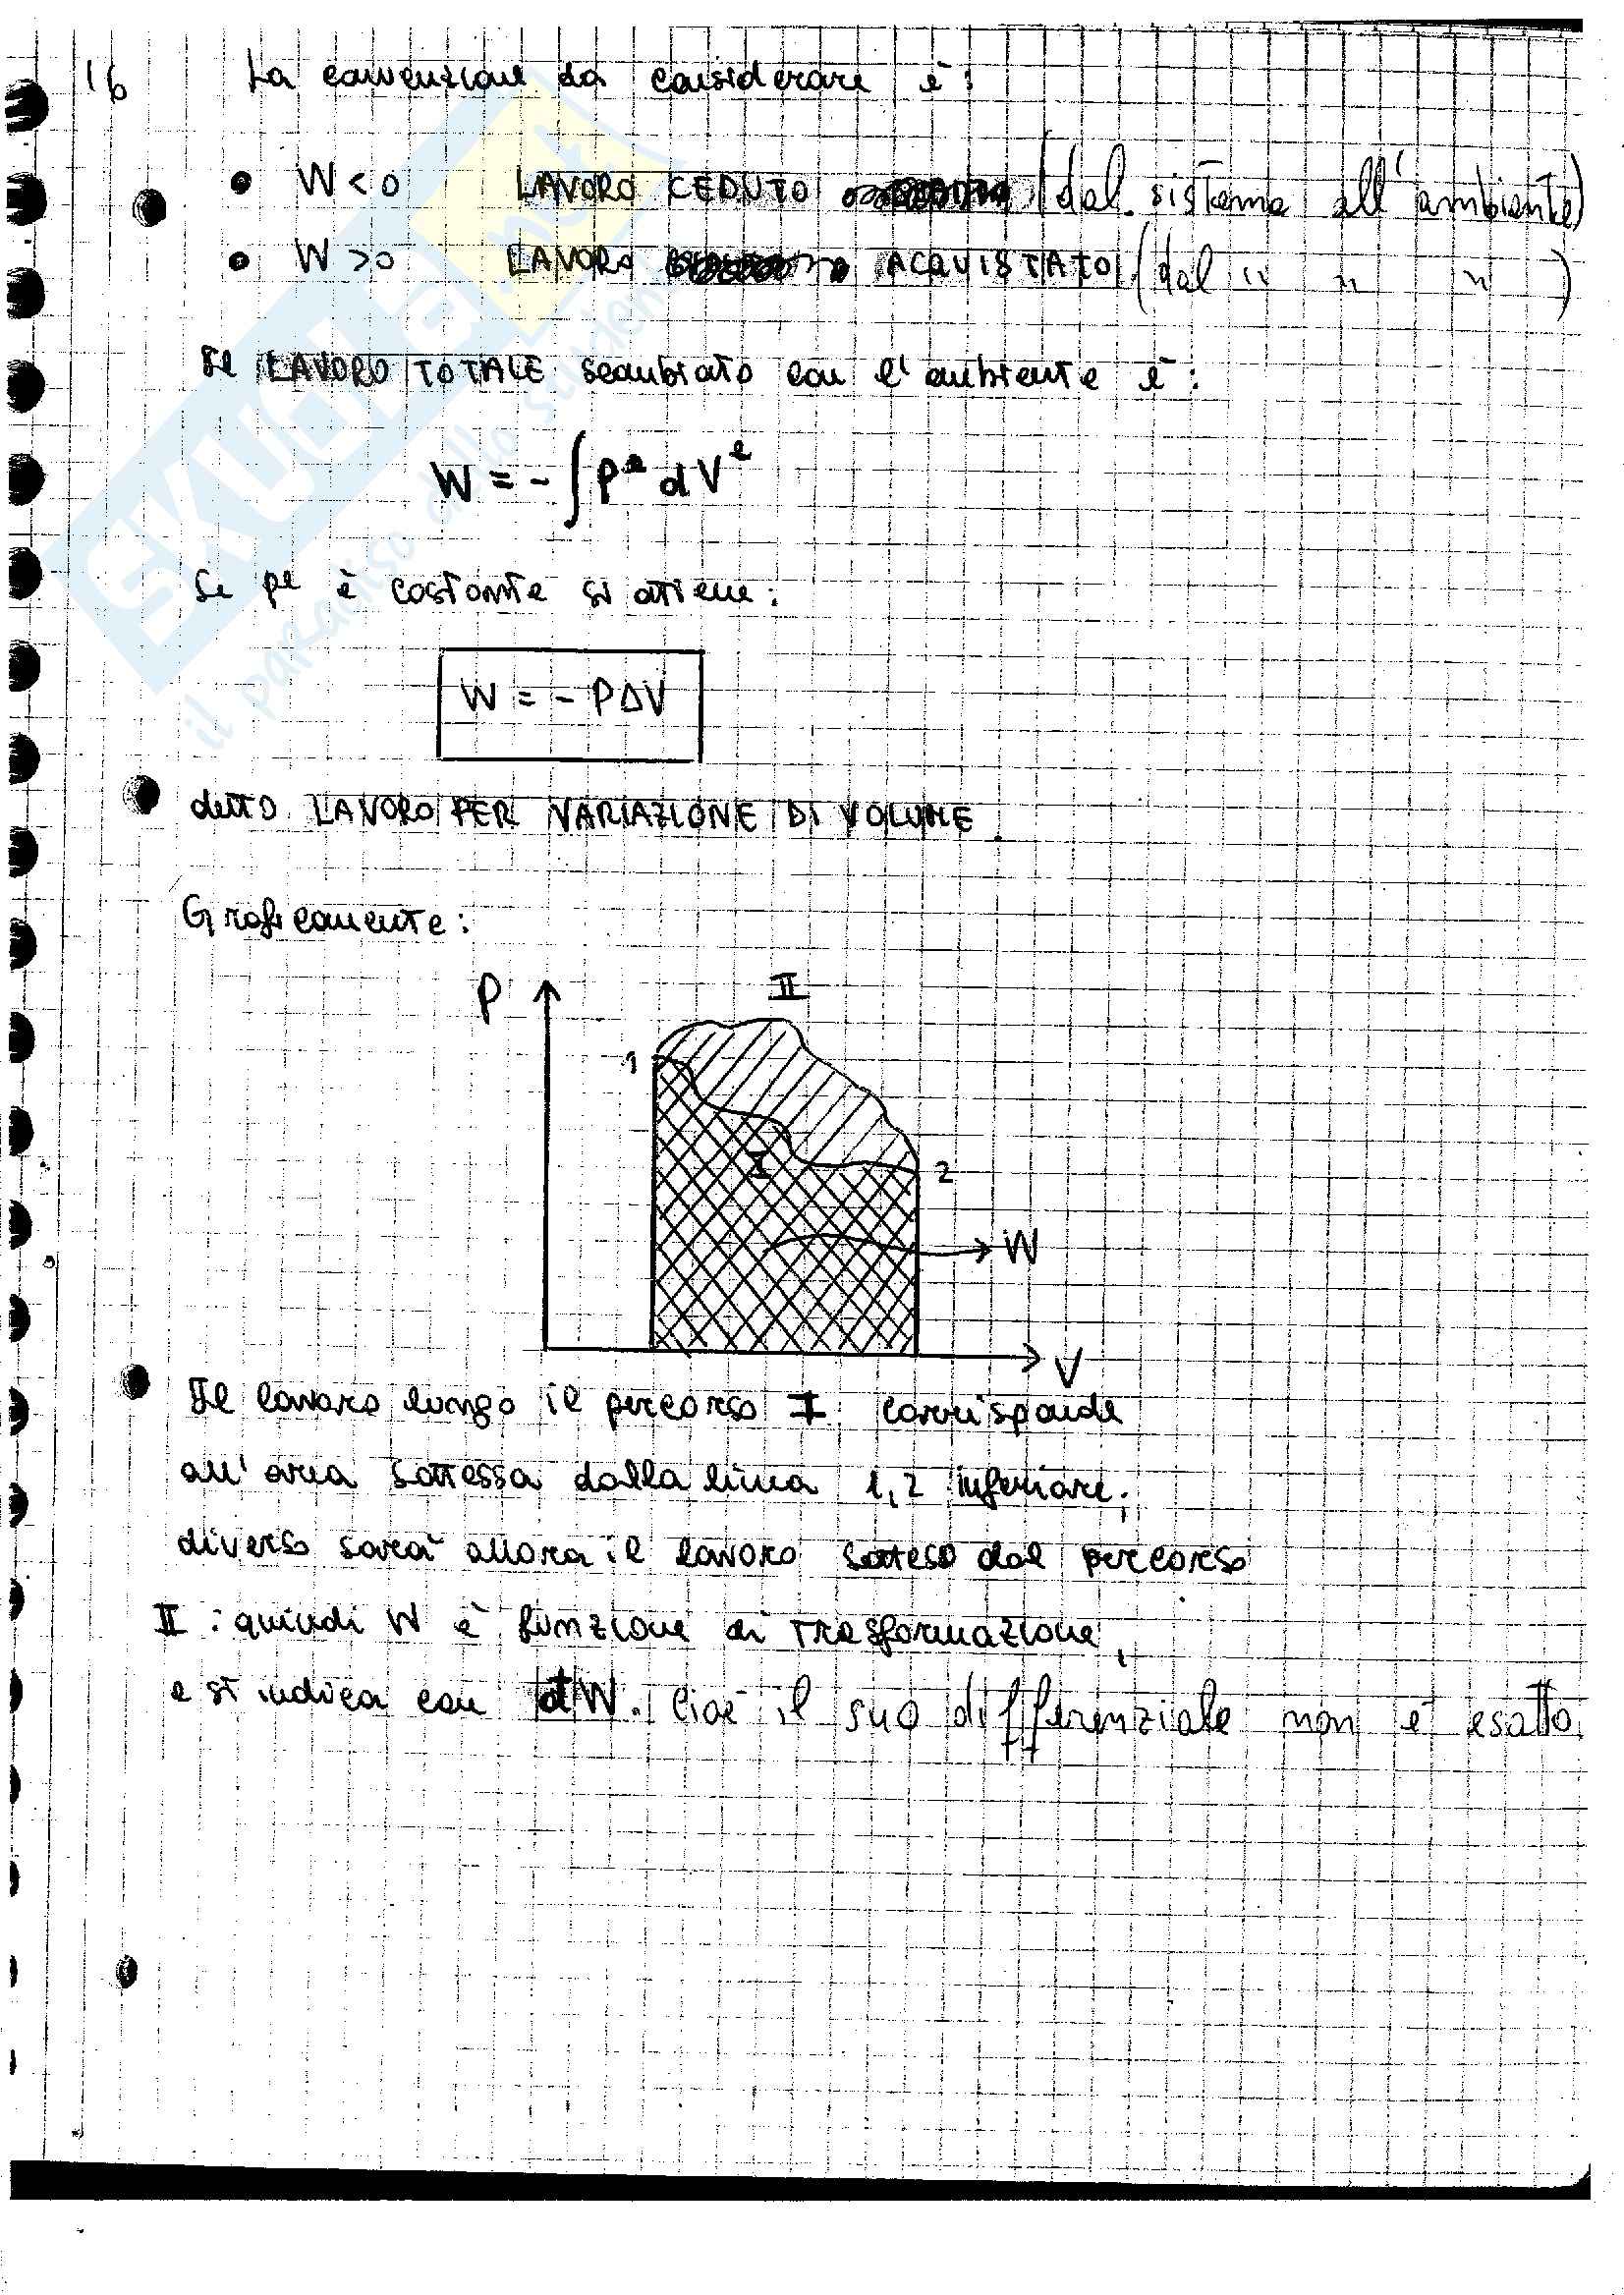 16 La convenzione da considerare è:
• W < 0 LAVORO CEDUTO (dal sistema all'ambiente)
• W > 0 LAVORO ACQUISTATO (dal " " " )
Il LAVORO TOTALE scambiato con l'ambiente è:
W = - ∫ Pᵉ dVᵉ
Se pe è costante si ottiene:
W = - PΔV
detto LAVORO PER VARIAZIONE DI VOLUME.
Graficamente:
P II
1
I 2
W
V
Il lavoro lungo il percorso I corrisponde
all'area sottessa dalla linea 1,2 inferiore;
diverso sarà allora il lavoro sotteso dal percorso
II : quindi W è funzione di trasformazione,
e si indica con đW. Cioè il suo differenziale non è esatto.
SKUOLA.net
il paradiso dello studente